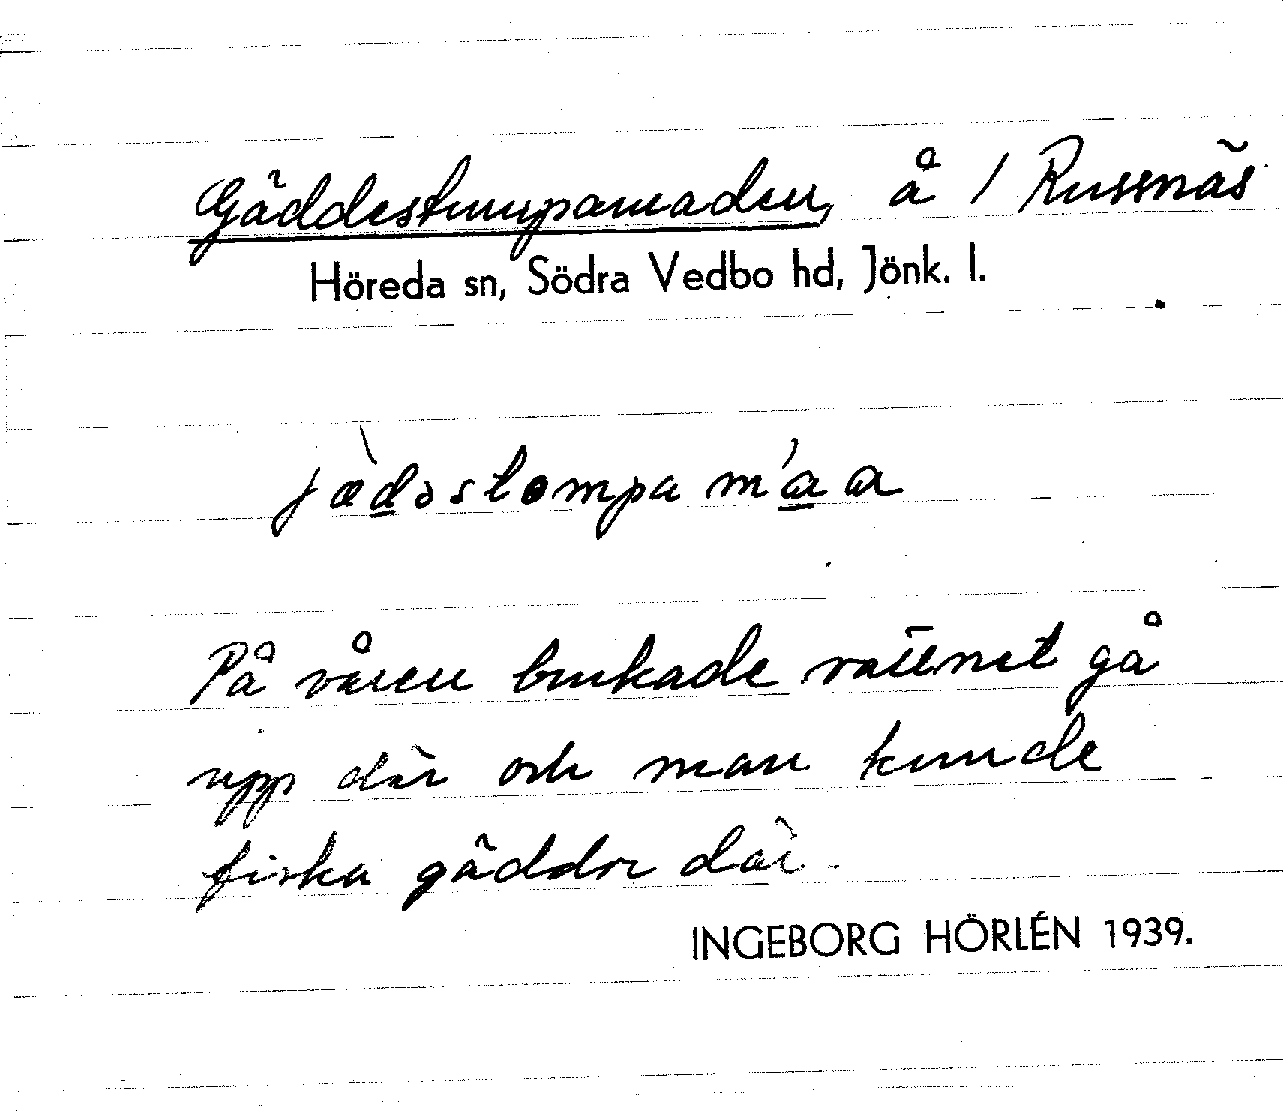 Gäddestumpamaden, å / Russnäs
Höreda sn, Södra Vedbo hd, Jönk. l.
jàdəstompa máa
På våren brukade vattnet gå
upp där och man kunde
fiska gäddor där.
INGEBORG HÖRLÉN 1939.